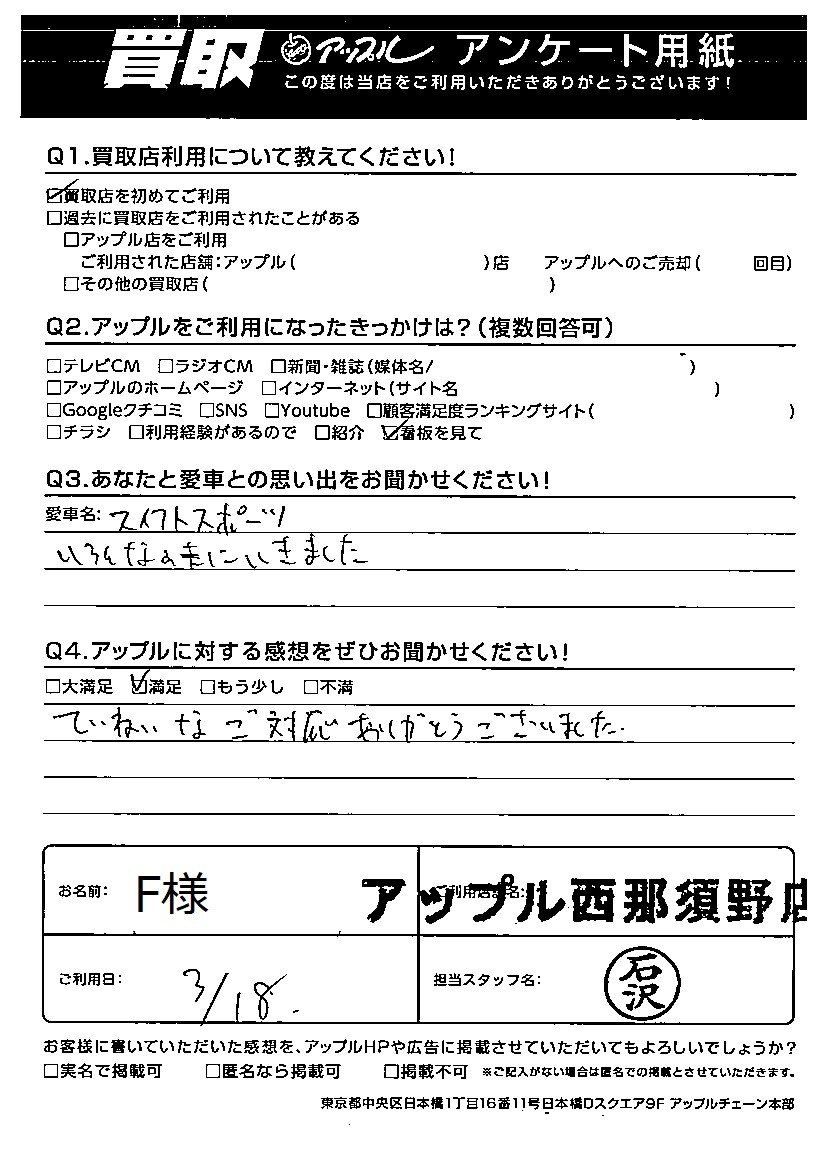 買取 アップル アンケート用紙
この度は当店をご利用いただきありがとうございます！
Q1.買取店利用について教えてください！
☑買取店を初めてご利用
□過去に買取店をご利用されたことがある
□アップル店をご利用
ご利用された店舗：アップル（ ）店 アップルへのご売却（ 回目）
□その他の買取店（ ）
Q2.アップルをご利用になったきっかけは？（複数回答可）
□テレビCM □ラジオCM □新聞・雑誌（媒体名/ ）
□アップルのホームページ □インターネット（サイト名 ）
□Googleクチコミ □SNS □Youtube □顧客満足度ランキングサイト（ ）
□チラシ □利用経験があるので □紹介 ☑看板を見て
Q3.あなたと愛車との思い出をお聞かせください！
愛車名： スイフトスポーツ
いろんなの走にいきました
Q4.アップルに対する感想をぜひお聞かせください！
□大満足 ☑満足 □もう少し □不満
ていねいな ご対応ありがとうございました.
お名前： F様 ご利用店舗名： アップル西那須野店
ご利用日： 3/18. 担当スタッフ名： 石沢
お客様に書いていただいた感想を、アップルHPや広告に掲載させていただいてもよろしいでしょうか？
□実名で掲載可 □匿名なら掲載可 □掲載不可 ※ご記入がない場合は匿名での掲載とさせていただきます。
東京都中央区日本橋1丁目16番11号日本橋Dスクエア9F アップルチェーン本部